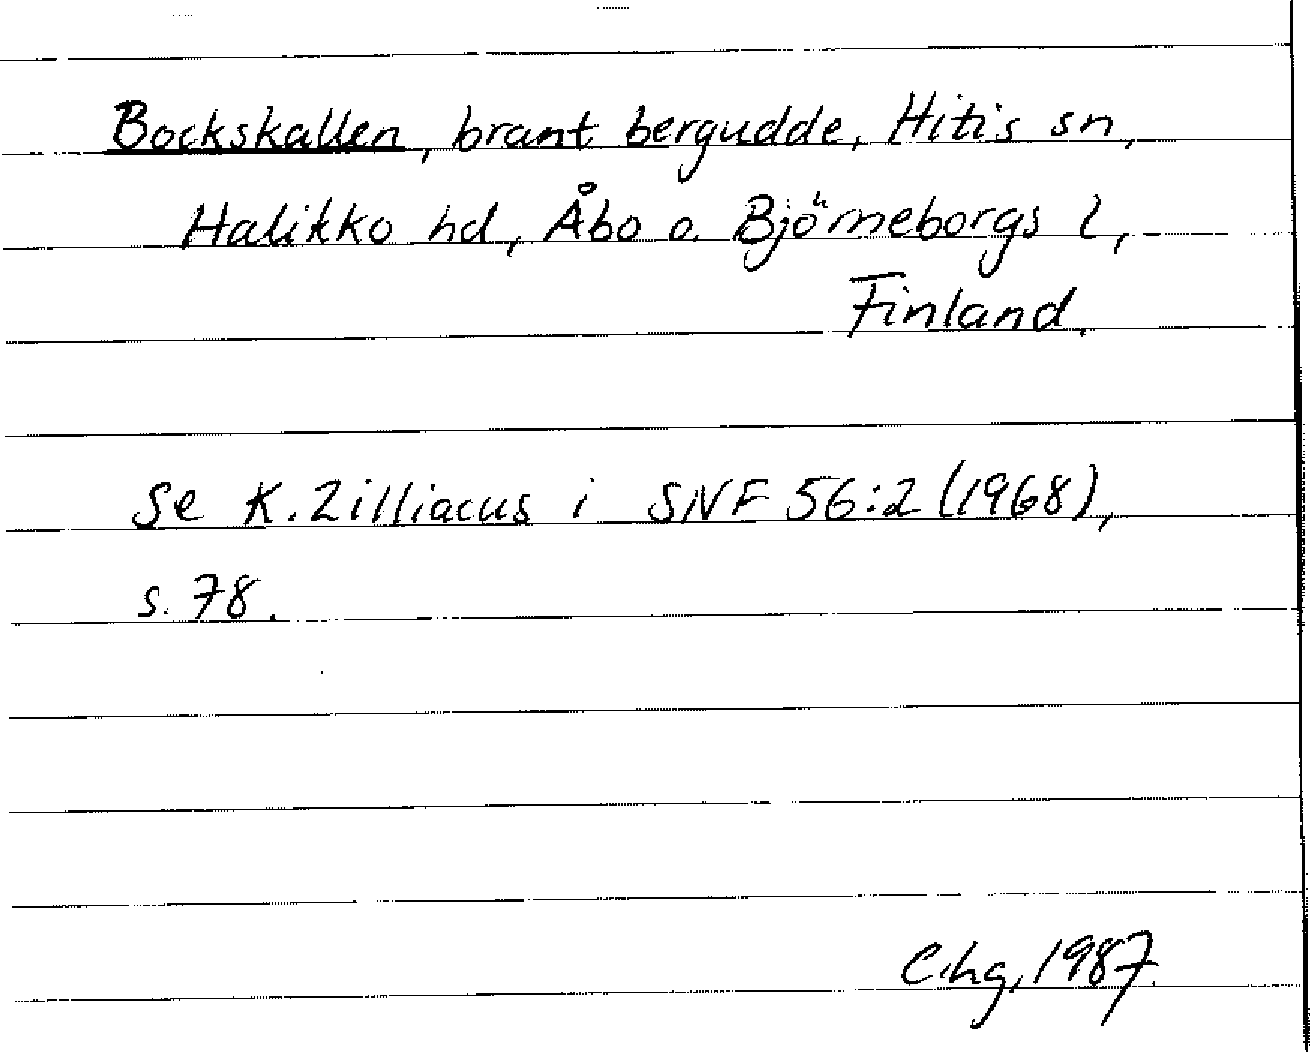 Bockskallen, brant bergudde, Hitis sn,
Halikko hd, Åbo o. Björneborgs l,
Finland.
Se K. Zilliacus i SNF 56:2 (1968),
s. 78.
C.hg, 1987.